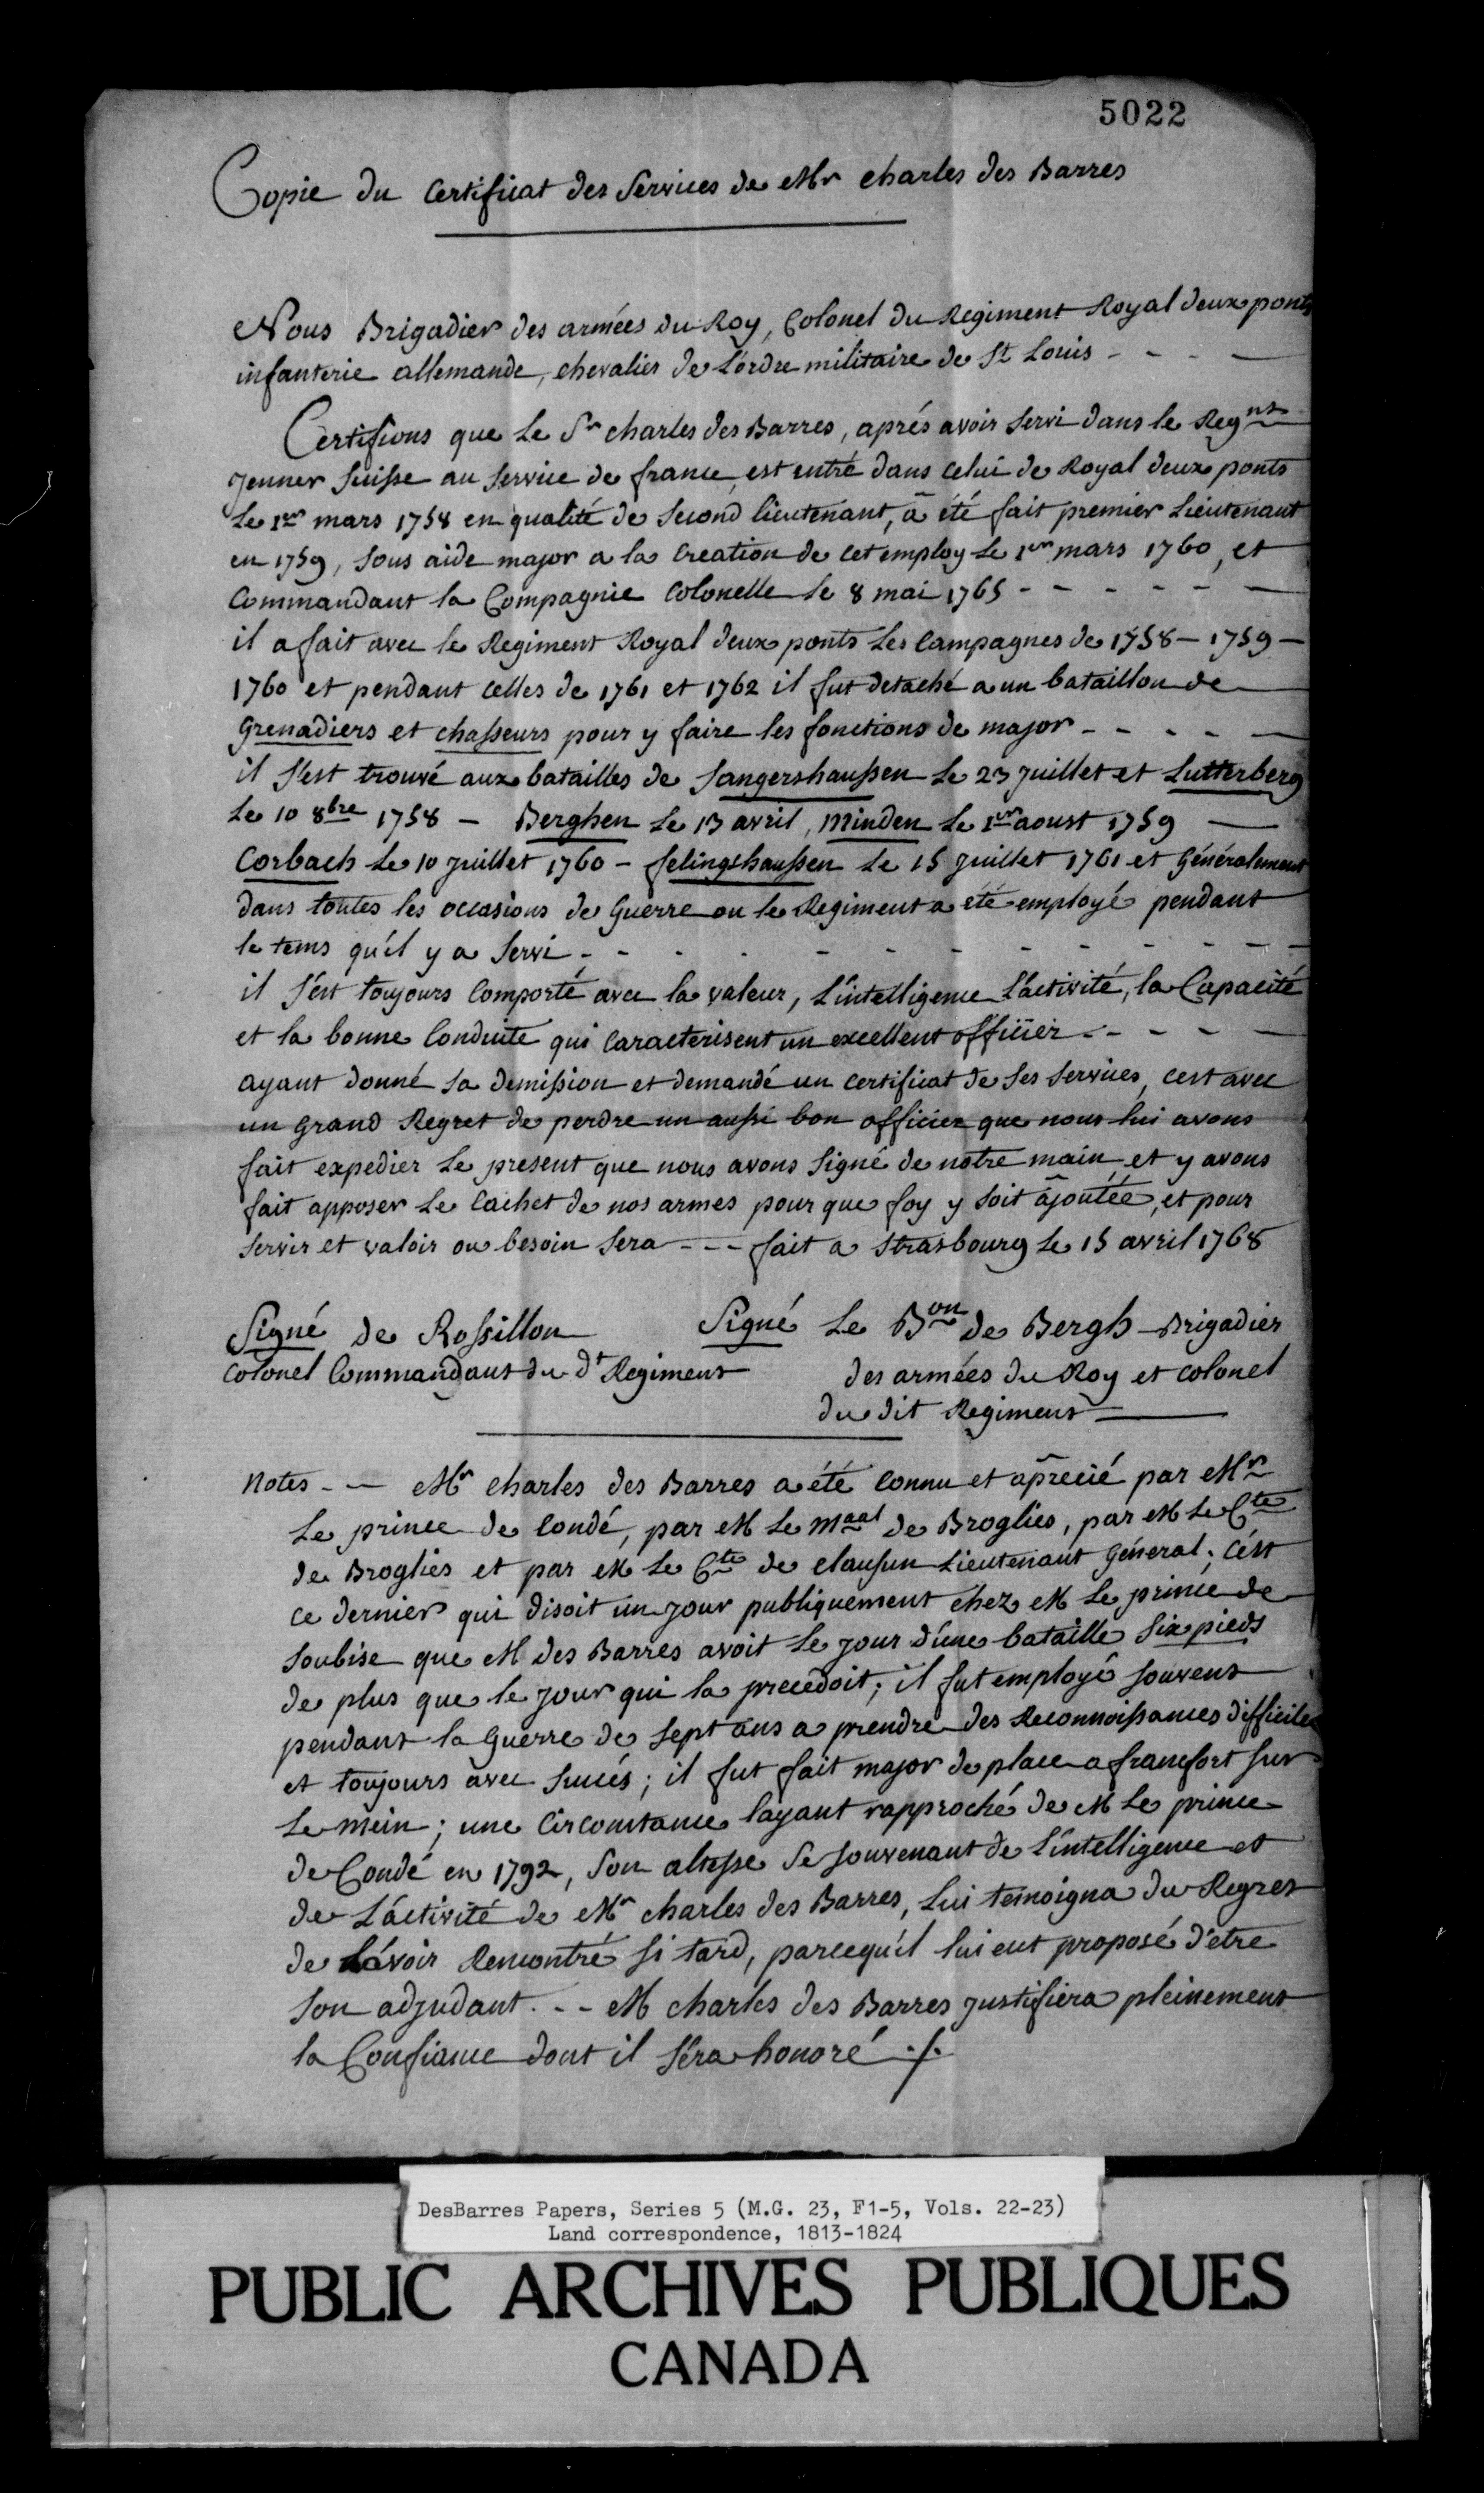 5022
Copie du Certificat des Services de Mr charles des Barres
Nous Brigadier des armées du Roy, Colonel du Regiment Royal deux ponts
infanterie allemande, chevalier de L'ordre militaire de St Louis - - - -
Certifions que Le Sr charles des Barres, aprés avoir servi dans le Regnt
Jenner Suisse au service de france, est entré dans celui de Royal deux ponts
Le 1er mars 1758 en qualité de second lieutenant, a été fait premier Lieutenant
en 1759, sous aide major a la creation de cet employ Le 1er mars 1760, et
Commandant la Compagnie Colonelle le 8 mai 1765 - - - - - -
il a fait avec le Regiment Royal deux ponts Les Campagnes de 1758 - 1759 -
1760 et pendant celles de 1761 et 1762 il fut detaché a un bataillon de
Grenadiers et chasseurs pour y faire les fonctions de major - - - - -
il s'est trouvé aux batailles de Sangershaussen Le 23 Juillet et Lutterberg
Le 10 8bre 1758 - Berghen Le 13 avril, Minden Le 1er aoust 1759 -
Corbach Le 10 Juillet 1760 - felingshaussen Le 15 Juillet 1761 et Généralement
dans toutes les occasions de Guerre ou le Regiment a été employé pendant
le tems qu'il y a servi - - - - - - - - - -
il s'est toujours comporté avec la valeur, L'intelligence L'activité, la Capacité
et la bonne Conduite qui Caracterisent un excellent officier - - - -
ayant donné sa demission et demandé un certificat de ses services, c'est avec
un grand Regret de perdre un aussi bon officier que nous lui avons
fait expedier Le present que nous avons signé de notre main, et y avons
fait apposer Le Cachet de nos armes pour que foy y soit ajoutée, et pour
servir et valoir ou besoin sera - - - fait a Strasbourg Le 15 avril 1768
Signé de Rossillon Signé Le Bon de Bergh Brigadier
Colonel Commandant du dt Regiment des armées du Roy et colonel
du dit Regiment
Notes - - Mr charles des Barres a été connu et aprecié par Mr
Le prince de Condé, par M Le Maal de Broglies, par M Le Cte
de Broglies et par M Le Cte de clausen Lieutenant Géneral; C'est
ce dernier qui disoit un jour publiquement chez M Le prince de
Soubise que M des Barres avoit Le jour d'une bataille six pieds
de plus que le jour qui la precedoit; il fut employé souvent
pendant la Guerre de sept ans a prendre des Reconnoissances difficiles
et toujours avec succés; il fut fait major de place a francfort sur
Le mein; une Circonstance layant rapproché de M Le prince
de Condé en 1792, son altesse se souvenant de L'intelligence et
de L'activité de Mr charles des Barres, Lui temoigna du Regret
de L'avoir Rencontré si tard, parcequ'il lui eut proposé d'etre
son adjudant. - - M charles des Barres justifiera pleinement
la Confiance dont il sera honoré ./.
DesBarres Papers, Series 5 (M.G. 23, F1-5, Vols. 22-23)
Land correspondence, 1813-1824
PUBLIC ARCHIVES PUBLIQUES
CANADA